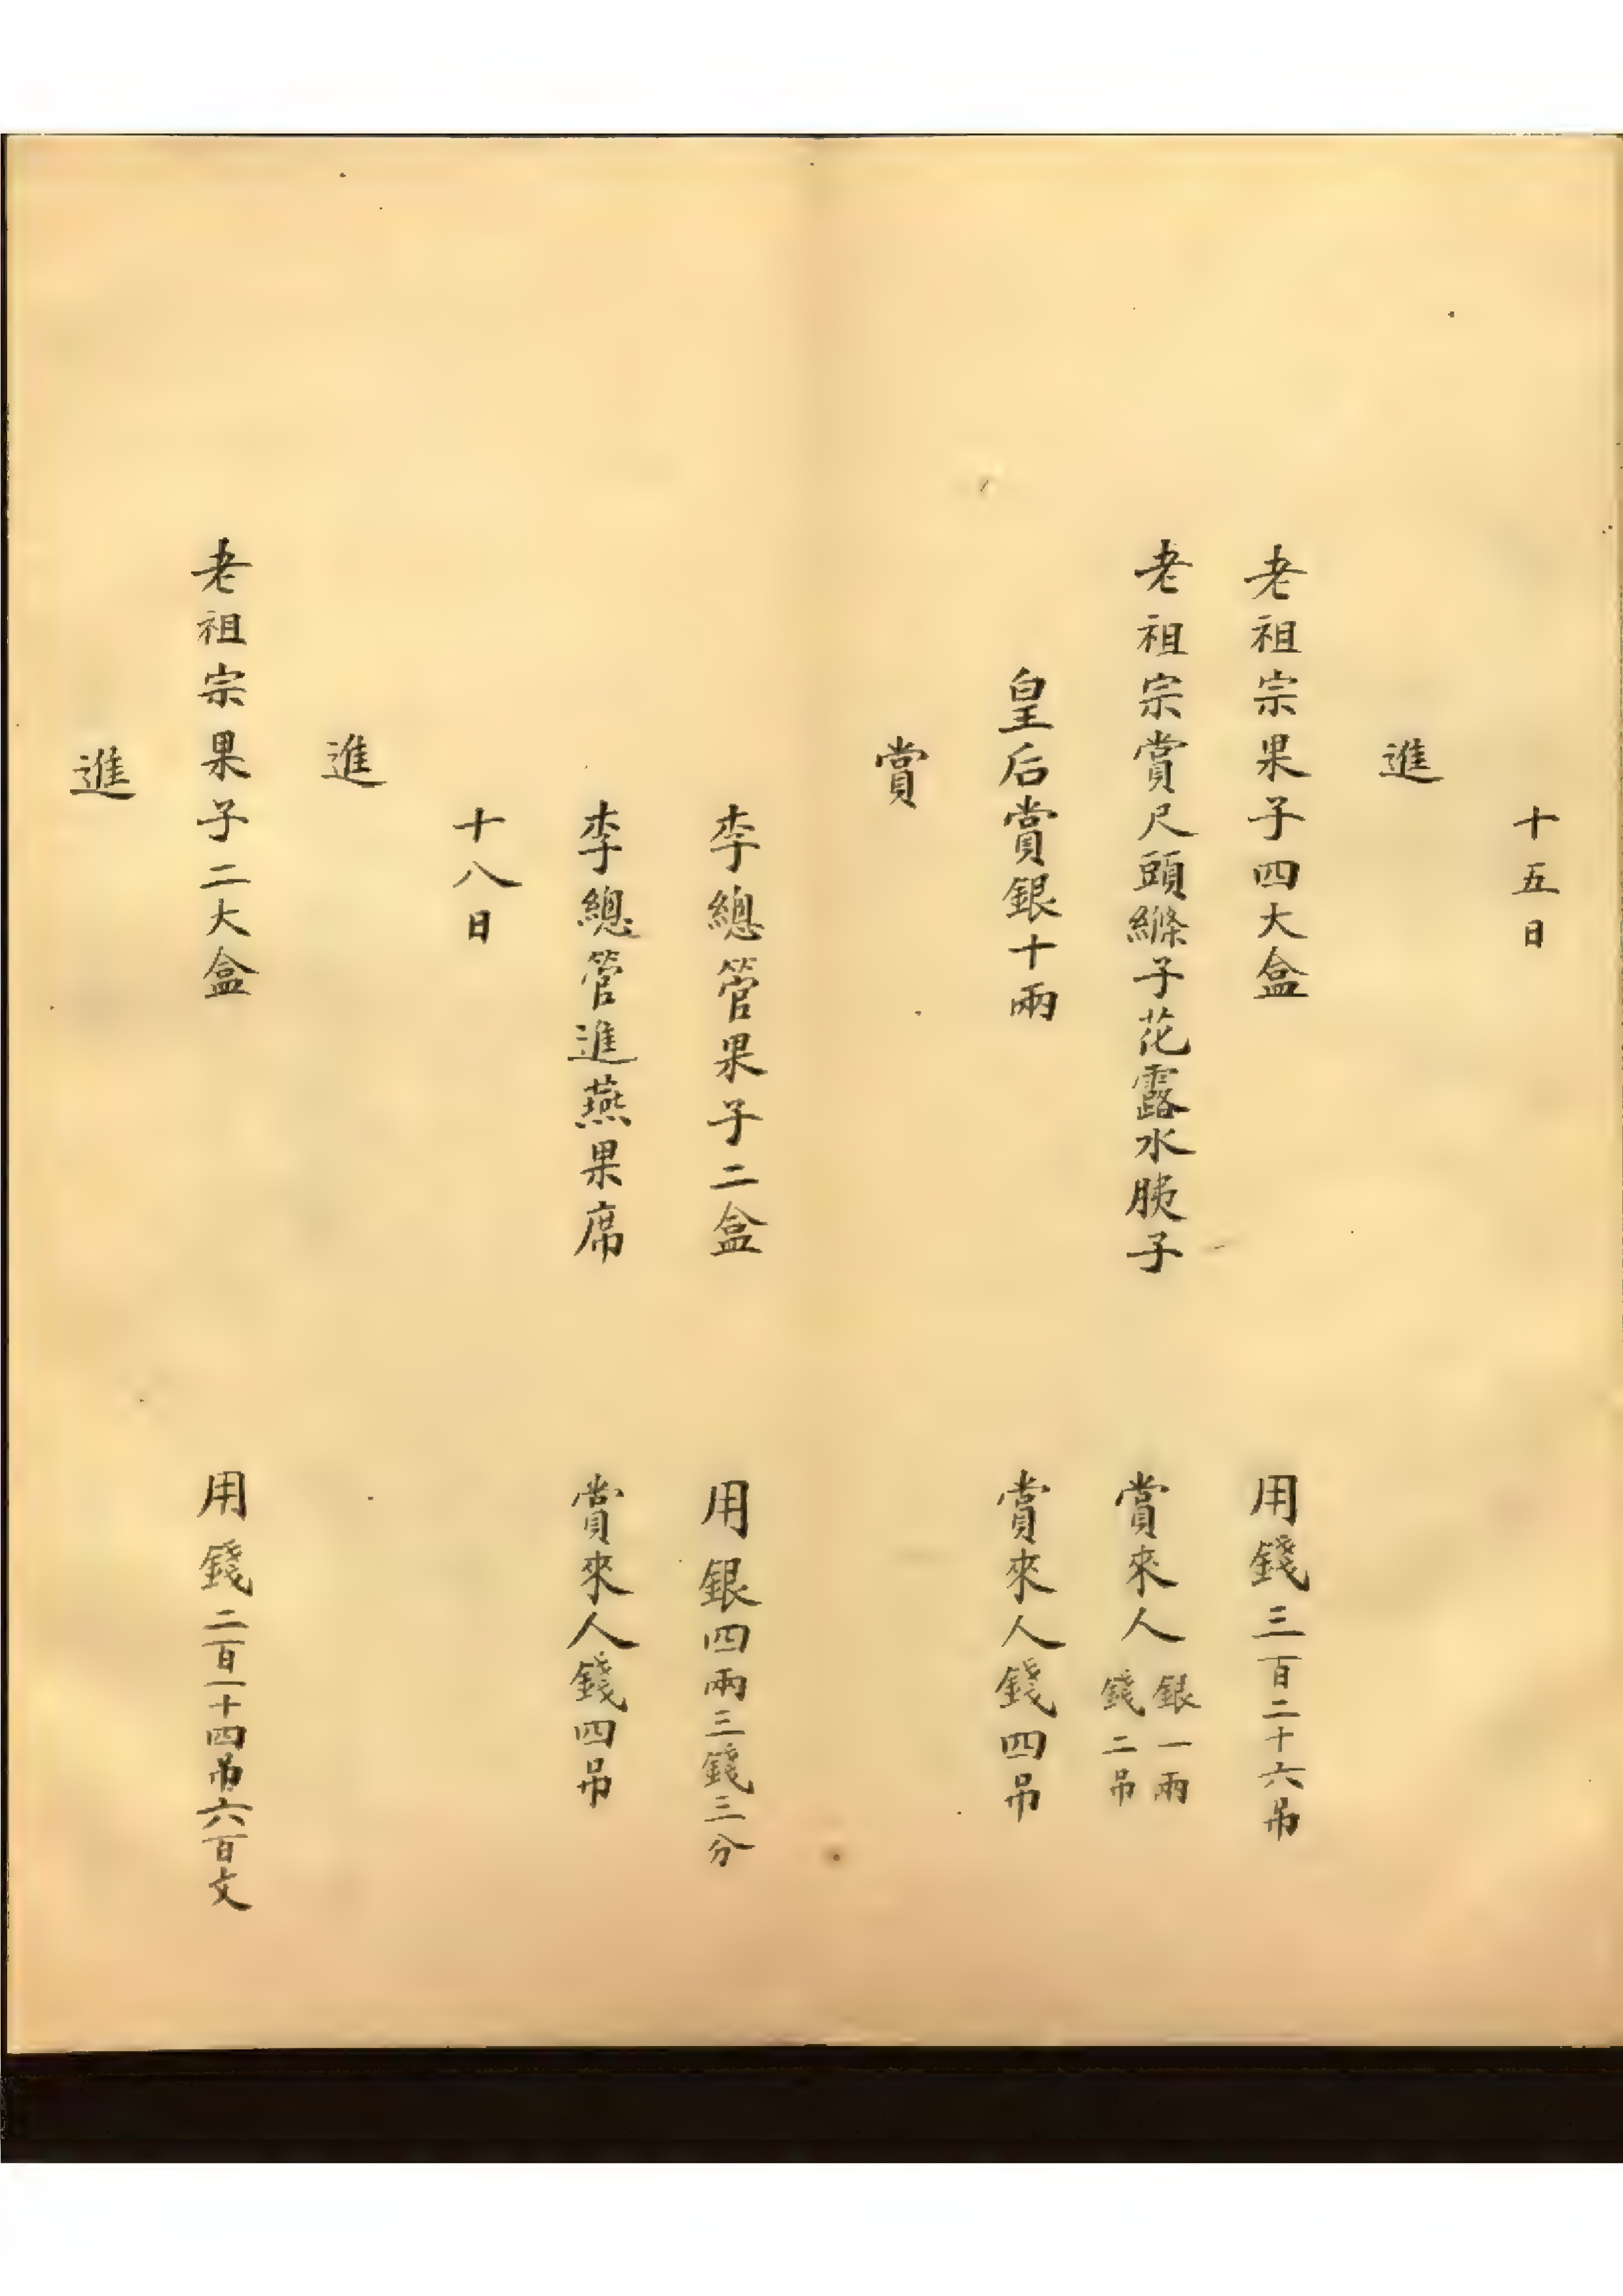 十五日
進
老祖宗果子四大盒 用錢三百二十六吊
老祖宗賞尺頭縧子花露水胰子 賞來人銀一兩錢二吊
皇后賞銀十兩 賞來人錢四吊
賞
李總管果子二盒 用銀四兩三錢三分
李總管進燕果席 賞來人錢四吊
十八日
進
老祖宗果子二大盒 用錢二百一十四吊六百文
進